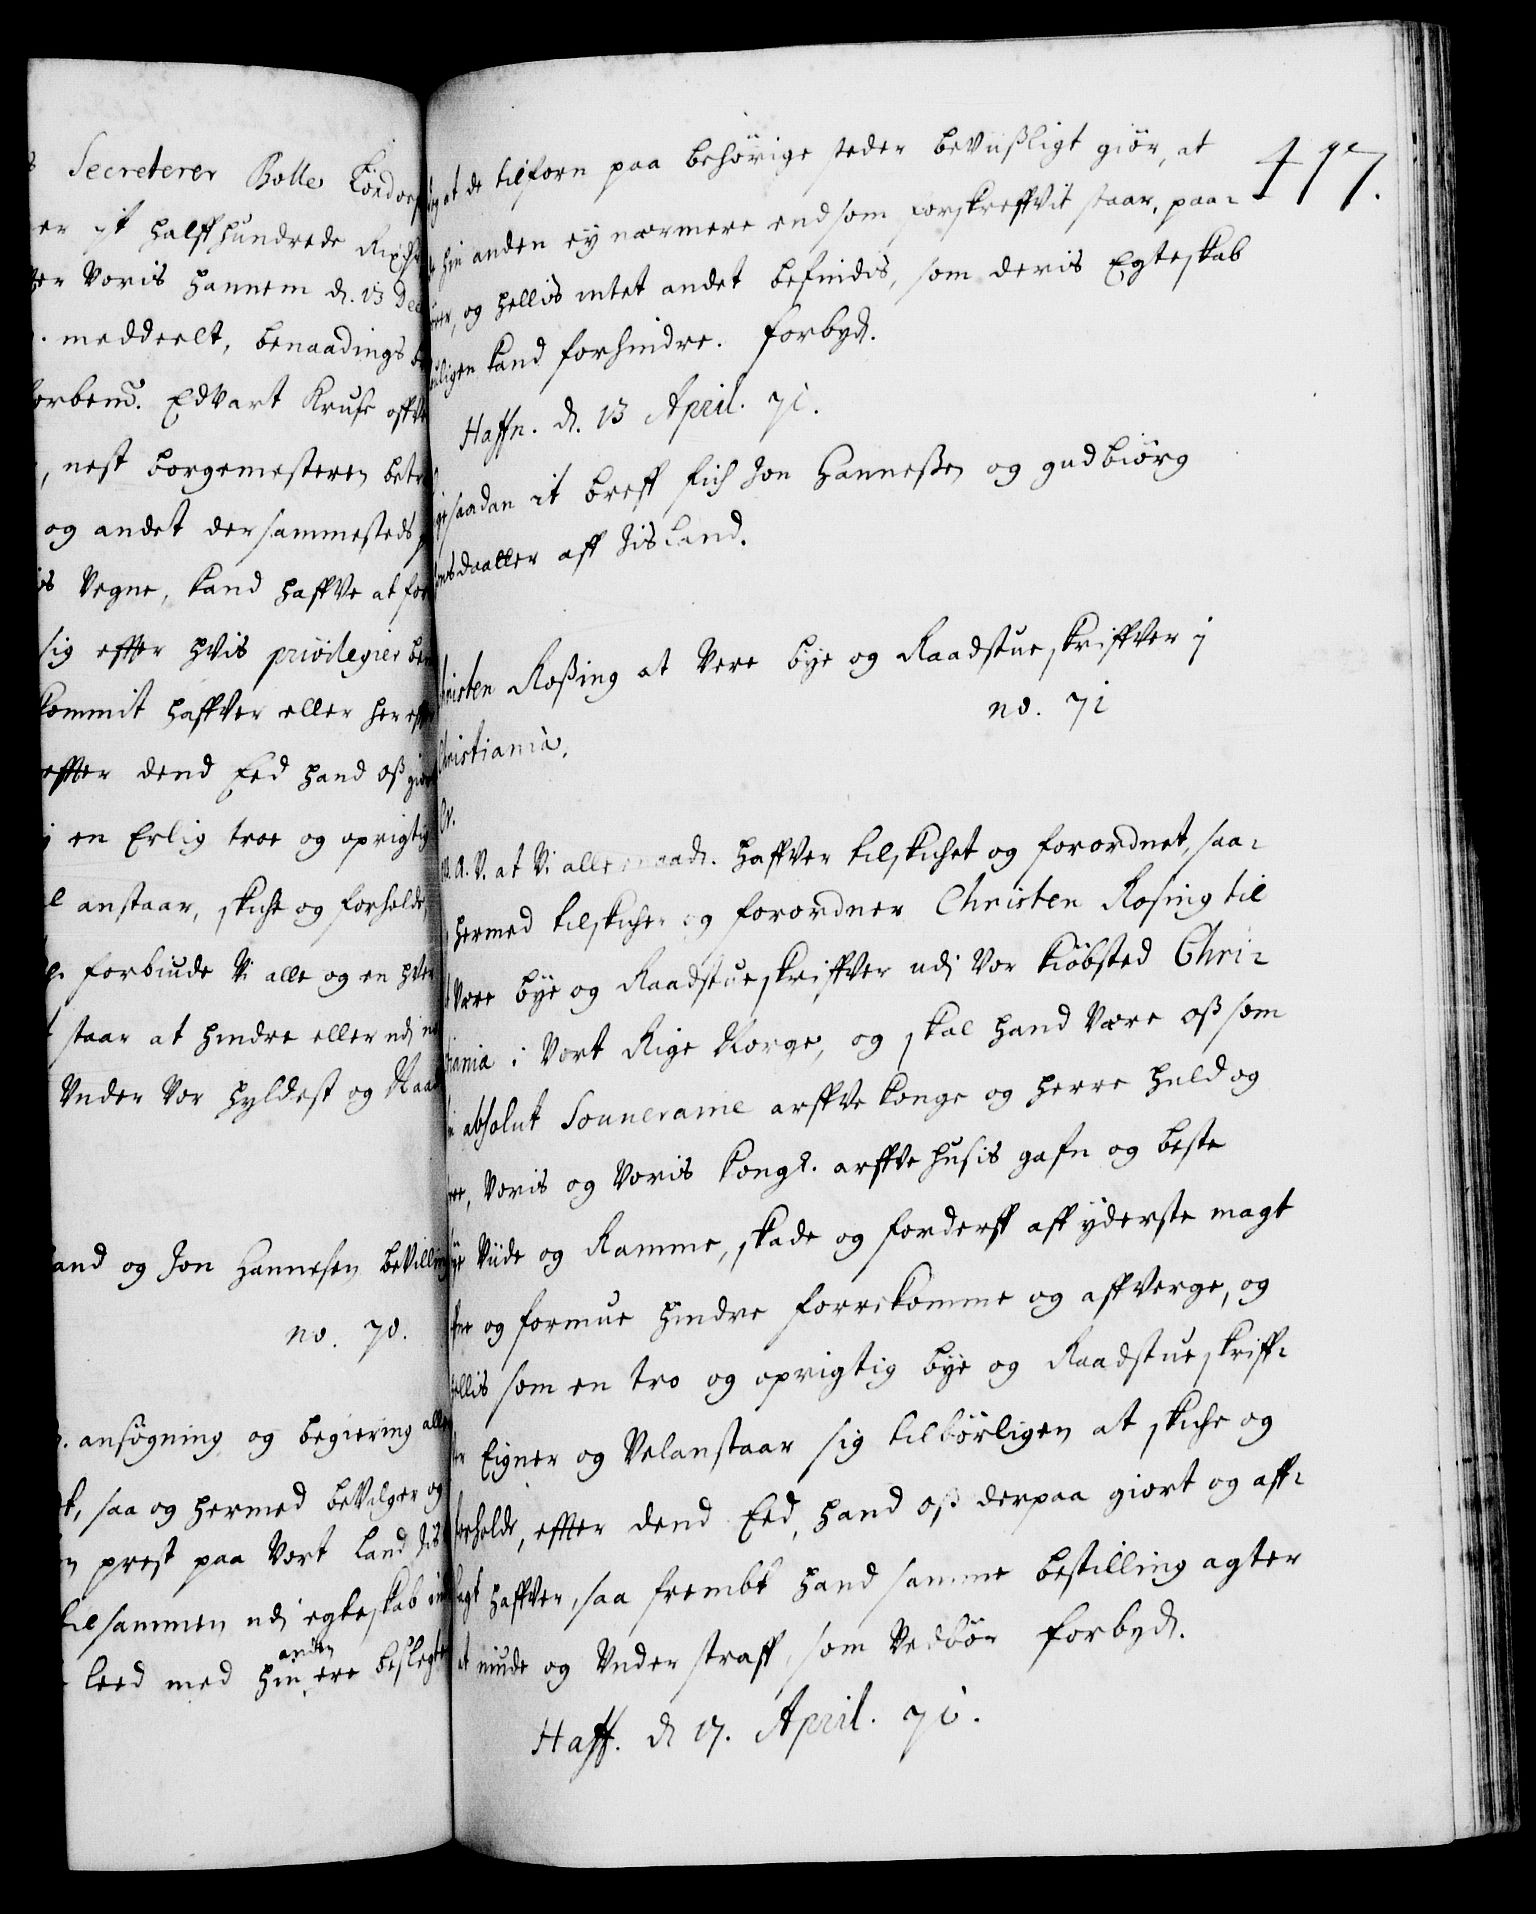 Secreterer Bolle Lÿxdorf
er it halff hundrede Rixd
er Voris hannem d. 13 De
meddeelt, benaadings
Edvart Kruse offve
, nest borgemesteren bet
og andet dersammesteds
Vegne, kand haffve at for
sig efter hvis privilegier be
kommit haffver eller her eff
effter dend Eed hand oß giø
en Erlig troe og oprigtig
l anstaar, skiche og forholde,
forbiude Vi alle og en hver
staar at hindre eller udj
Vnder Vor hyldest og Naad
and og Jon Hannesen bevilling
no. 70.
ansøgning og begiering all
saa og hermed bevilger og
prest paa Vort Land Is
tilsammen udj egteskab
leed med hin anden ere beslegte
417.
og at de tilforn paa behörige steder bevißligt giör, at
de hin anden ey nærmere end som forskreffvit staar, paa-
rörer, og hellis intet andet befindis, som deris Egteskab
louligen kand forhindre. Forbyd.
Haffn. d. 13 April. 71.
Lige saadan it breff fich Jon Hanneßen og gudbiörg
Jonsdaatter aff Jisland.
Christen Roßing at Vere bye og Raadstue skriffver j
Christiania.
no. 71
Cr.
G. A. V. at Vi allernaad. haffver tilskichet og forordnet, saa-
hermed tilskicher og forordner Christen Rosing til
at Være bye og Raadstueskriffver udj Vor kiöbsted Chri-
stiania i Vort Rige Norge, og skal hand Være oß som
sin absolut Souveraine arffve konge og herre huld og
troe, Voris og Voris kongl. arffve husis gafn og beste
Viide og Ramme, skade og forderff aff yderste magt
efne og formue hindre forrekomme og affverge, og
hellis som en tro og oprigtig bye og Raadstue skriff-
ver Eigner og Velanstaar sig tilbörligen at skiche og
forholde, effter dend Eed, hand oß derpaa giort og aff-
lagt haffver, saa frembt hand samme bestilling agter
at niude og Vnder straff, som Vedbör Forbyd.
Haff. d 17. April. 71.